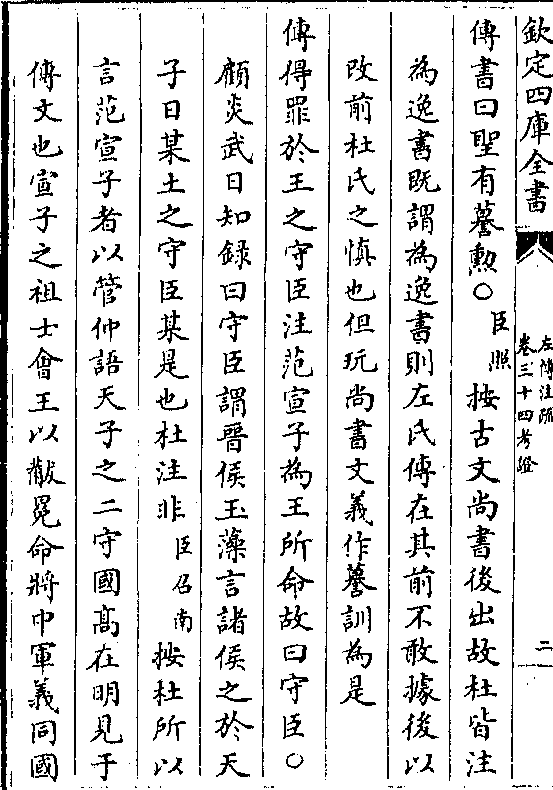 欽定四庫全書
左傳注疏
卷三十四考證
二
傳書曰聖有謩勲○臣照按古文尚書後出故杜皆注
為逸書既謂為逸書則左氏傳在其前不敢據後以
改前杜氏之慎也但玩尚書文義作謩訓為是
傳得罪於王之守臣注范宣子為王所命故曰守臣○
顧炎武日知録曰守臣謂晉侯玉藻言諸侯之於天
子曰某土之守臣某是也杜注非臣召南按杜所以
言范宣子者以管仲語天子之二守國髙在明見于
傳文也宣子之祖士會王以黻冕命將中軍義同國